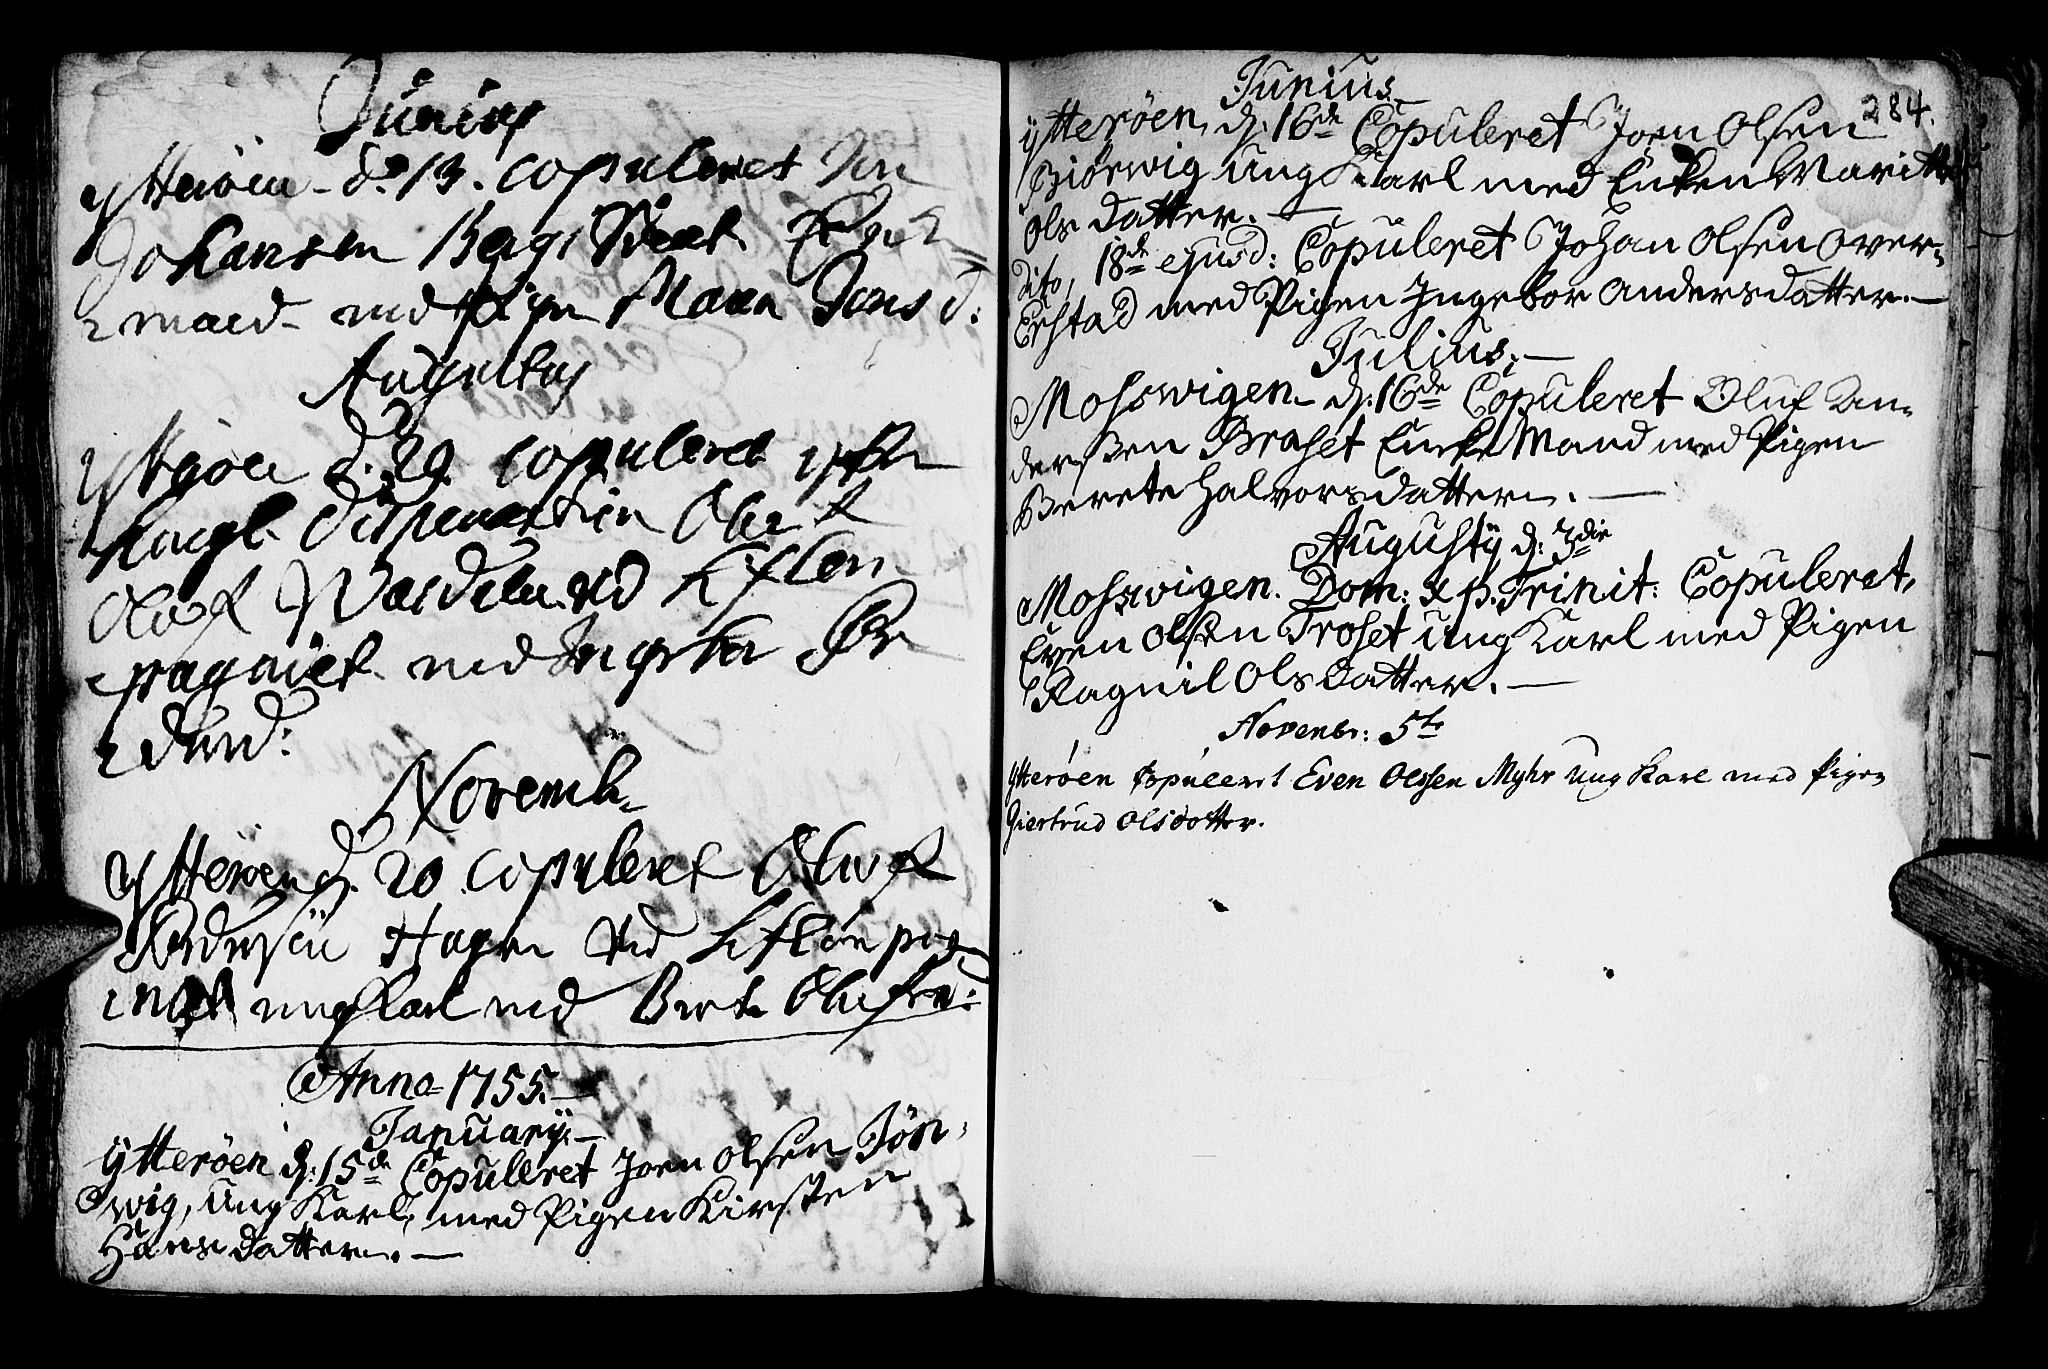 Junius
Ytterøen d. 13. copuleret Jon
Johansen Berg
mand med Pigen Maren Jonsd:
Augustus
Ytterøen d. 29. copuleret efter
Kongl. Dispensation
Oluf ved
med Ingebor
Novembr
Ytterøen d. 20 Copuleret Oluf
Andersen Hagen ved
ungkarl med Berte Olufsd:
Anno 1755.
Januarij.
Ytterøen d: 15de Copuleret Joen Olsen Jön-
wig, Ung Karl, med Pigen Kirsten
Hansdatter.
284.
Junius.
Ytterøen, d: 16de Copuleret Joen Olsen
Biörwig Ung Karl med Enken Maritte
Olsdatter.
Dito, 18de ejusd: Copuleret Johan Olsen Over-
Erstad med Pigen Ingebor Andersdatter.
Julius.
Moßwigen d: 16de Copuleret Oluf An-
derßen Braset Enke Mand med Pigen
Berete Halvorsdatter.
Augustij d: 3die
Moßwigen. Dom: X p. Trinit: Copuleret,
Even Olsen Troset Ung Karl med Pigen
Ragnil Olsdatter.
Novenbr: 5te
Ytterøen Copuleret Even Olssen Myhr Ung Karl med Pigen
Giertrud Olsdotter.